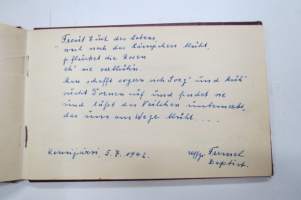 Freut Euch des Lebens,
weil noch das Lämpchen glüht,
pflücket die Rosen
eh' sie verblühn.
Man schafft so gern sich Sorg' und Müh'
sucht Dornen auf und findet sie
und läßt das Veilchen unbemerkt,
das uns am Wege blüht....
Kemijärvi, 5.7.1942.
Uffz.